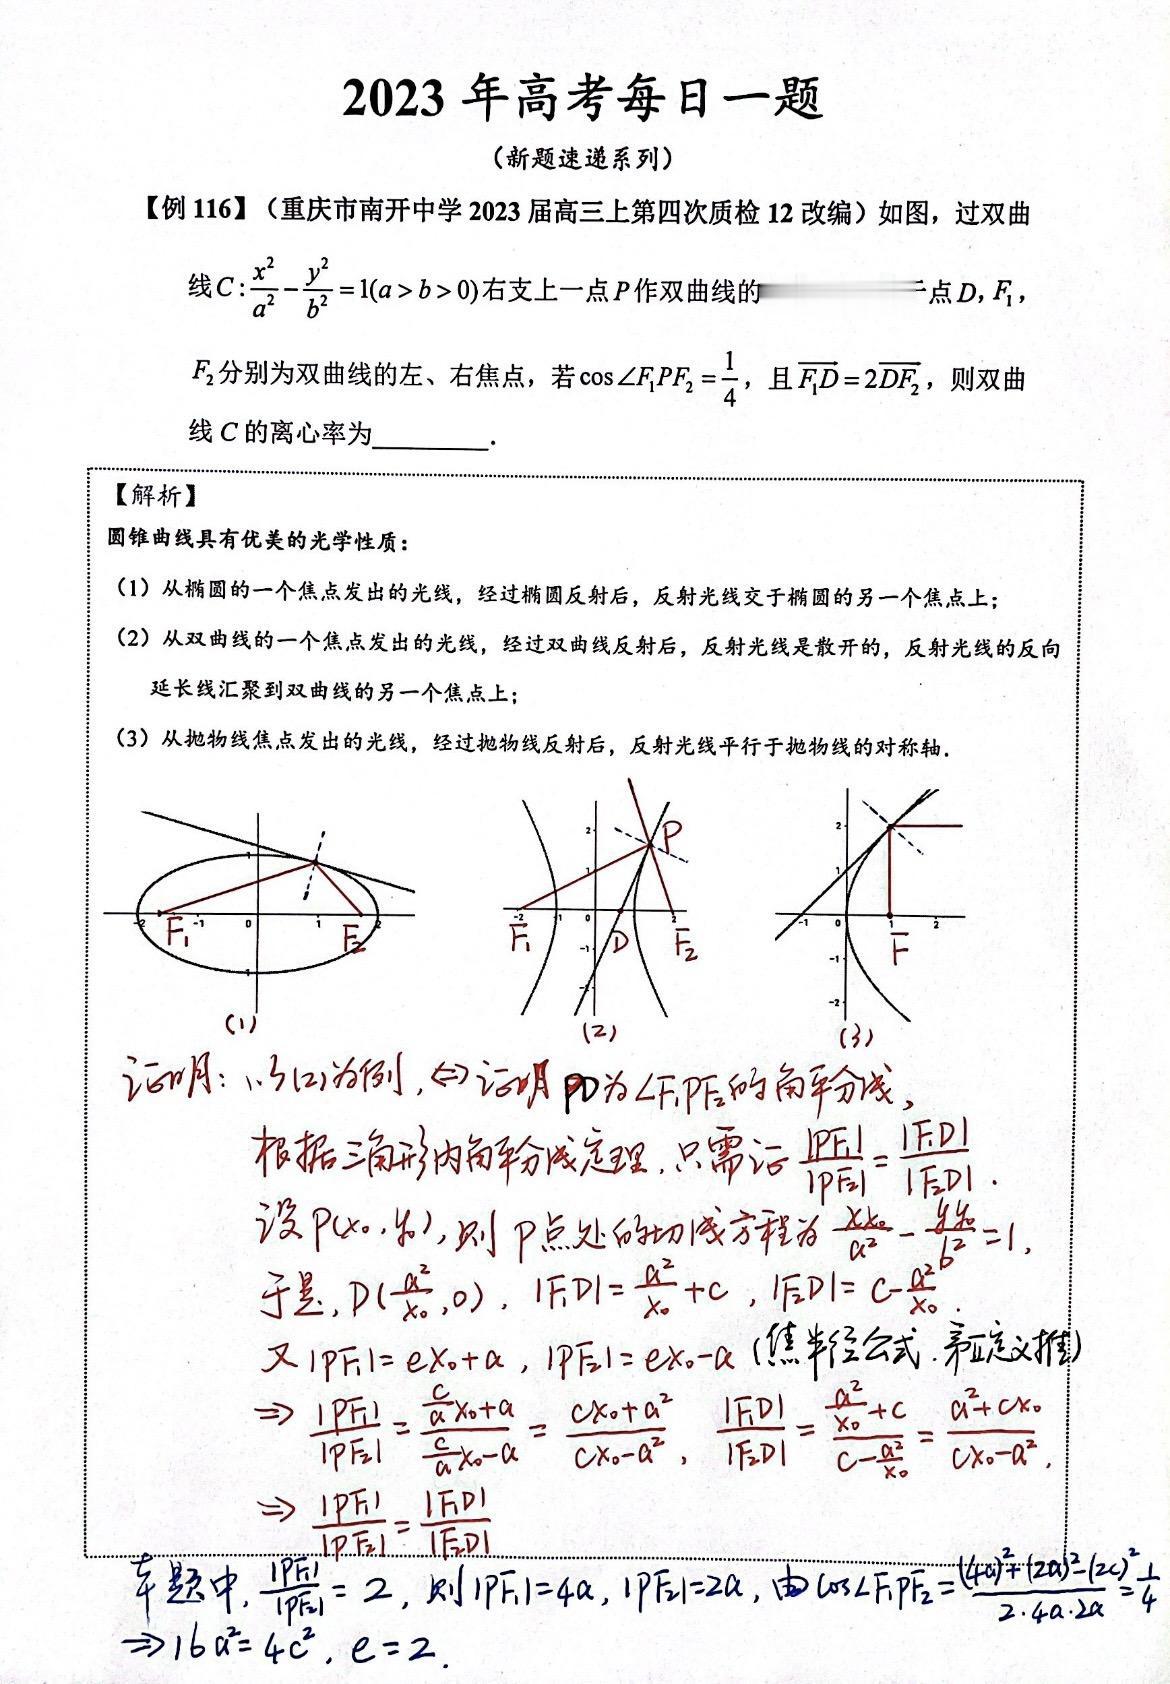 2023 年高考每日一题
（新题速递系列）
【例 116】（重庆市南开中学 2023 届高三上第四次质检 12 改编）如图，过双曲
线 C: x²/a² - y²/b² = 1(a > b > 0) 右支上一点 P 作双曲线的 点 D, F₁,
F₂ 分别为双曲线的左、右焦点，若 cos∠F₁PF₂ = 1/4，且 F₁D = 2DF₂，则双曲
线 C 的离心率为________.
【解析】
圆锥曲线具有优美的光学性质：
（1）从椭圆的一个焦点发出的光线，经过椭圆反射后，反射光线交于椭圆的另一个焦点上；
（2）从双曲线的一个焦点发出的光线，经过双曲线反射后，反射光线是散开的，反射光线的反向
延长线汇聚到双曲线的另一个焦点上；
（3）从抛物线焦点发出的光线，经过抛物线反射后，反射光线平行于抛物线的对称轴.
F₁ F₂
P F₁ D F₂
F
(1) (2) (3)
证明：以(2)为例，⇔证明PD为∠F₁PF₂的角平分线，
根据三角形内角平分线定理，只需证 |PF₁|/|PF₂| = |F₁D|/|F₂D|.
设P(x₀, y₀)，则P点处的切线方程为 xx₀/a² - yy₀/b² = 1,
于是，D(a²/x₀, 0)，|F₁D| = a²/x₀ + c，|F₂D| = c - a²/x₀.
又|PF₁| = ex₀+a，|PF₂| = ex₀-a (焦半径公式.第二定义推)
⇒ |PF₁|/|PF₂| = (c/a x₀+a)/(c/a x₀-a) = (cx₀+a²)/(cx₀-a²)，|F₁D|/|F₂D| = (a²/x₀+c)/(c-a²/x₀) = (a²+cx₀)/(cx₀-a²).
⇒ |PF₁|/|PF₂| = |F₁D|/|F₂D|
本题中，|PF₁|/|PF₂| = 2，则|PF₁|=4a，|PF₂|=2a，由cos∠F₁PF₂ = ((4a)²+(2a)²-(2c)²)/(2·4a·2a) = 1/4
⇒16a²=4c²，e=2.